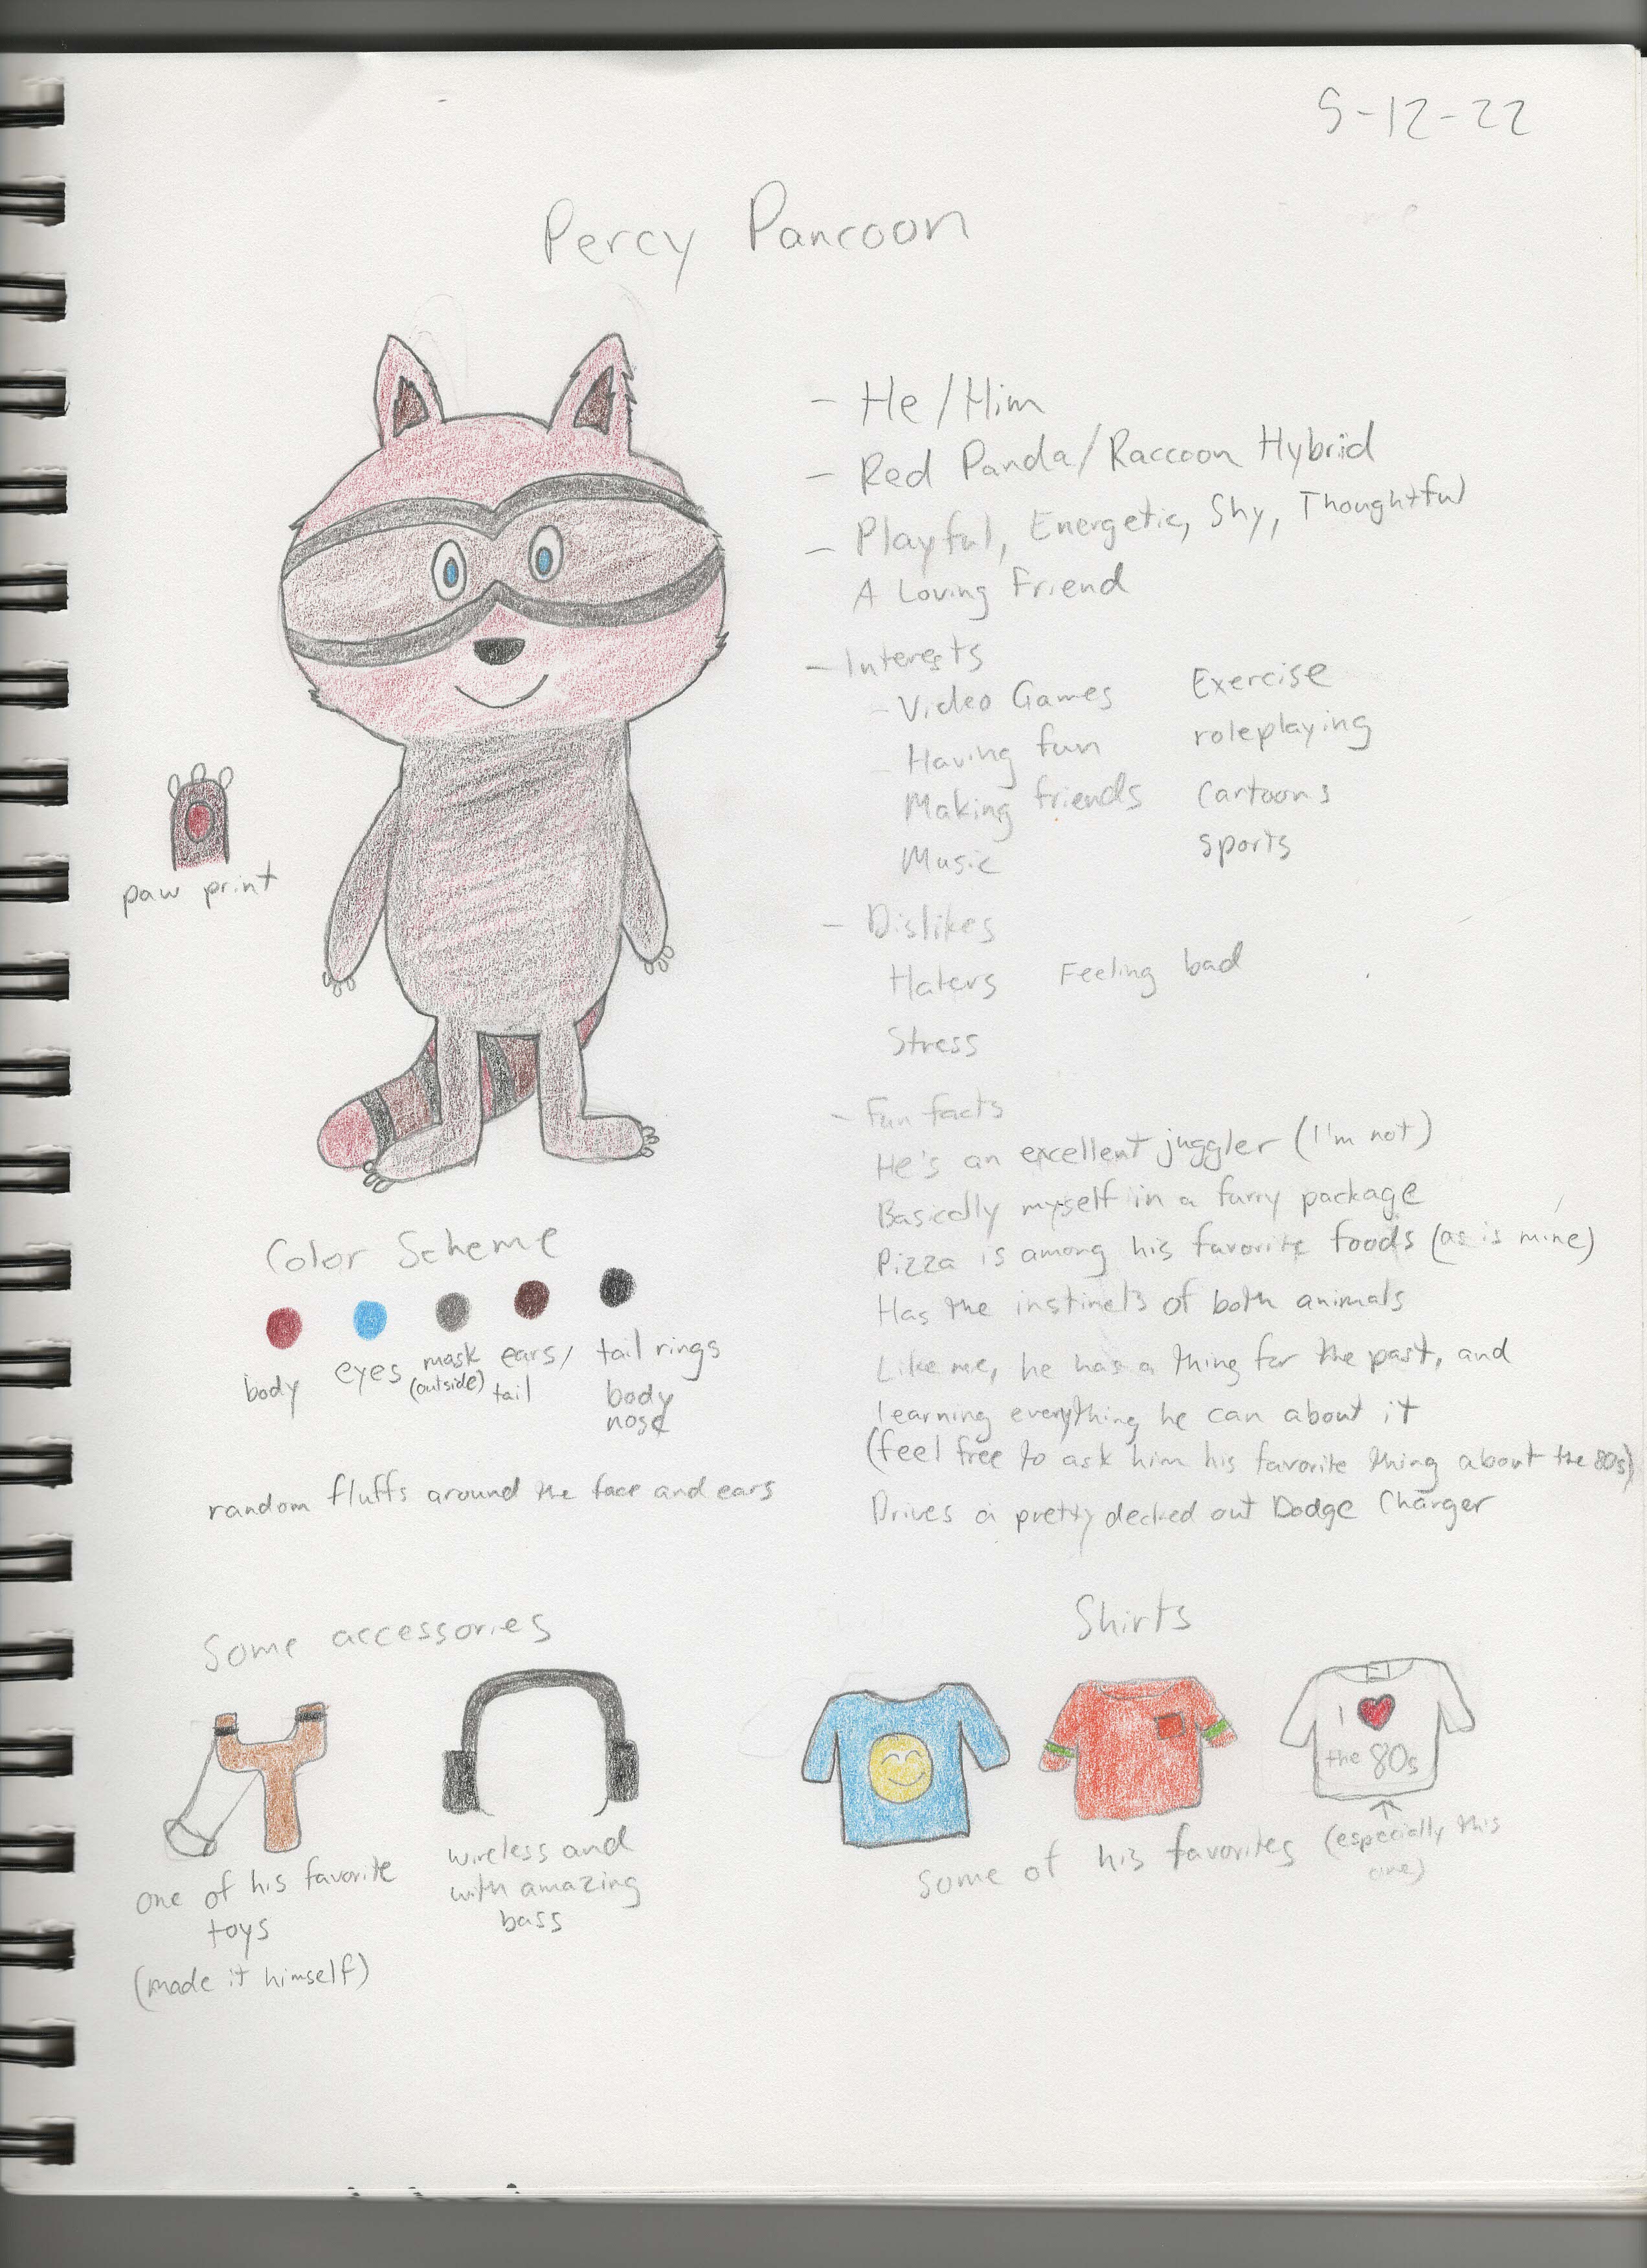 5-12-22
Percy Pancoon
- He/Him
- Red Panda/Raccoon Hybrid
- Playful, Energetic, Shy, Thoughtful
A Loving Friend
- Interests
- Video Games Exercise
- Having fun roleplaying
Making friends Cartoons
Music sports
- Dislikes
Haters Feeling bad
Stress
- Fun facts
He's an excellent juggler (I'm not)
Basiclly myself in a furry package
Pizza is among his favorite foods (as is mine)
Has the instincts of both animals
Like me, he has a thing for the past, and
learning everything he can about it
(feel free to ask him his favorite thing about the 80s)
Drives a pretty decked out Dodge Charger
paw print
Color Scheme
body
eyes
mask
(outside)
ears/
tail
tail rings
body
nose
random fluffs around the face and ears
Some accessories
one of his favorite
toys
(made it himself)
wireless and
with amazing
bass
Shirts
I
the 80s
some of his favorites
(especially this
one)